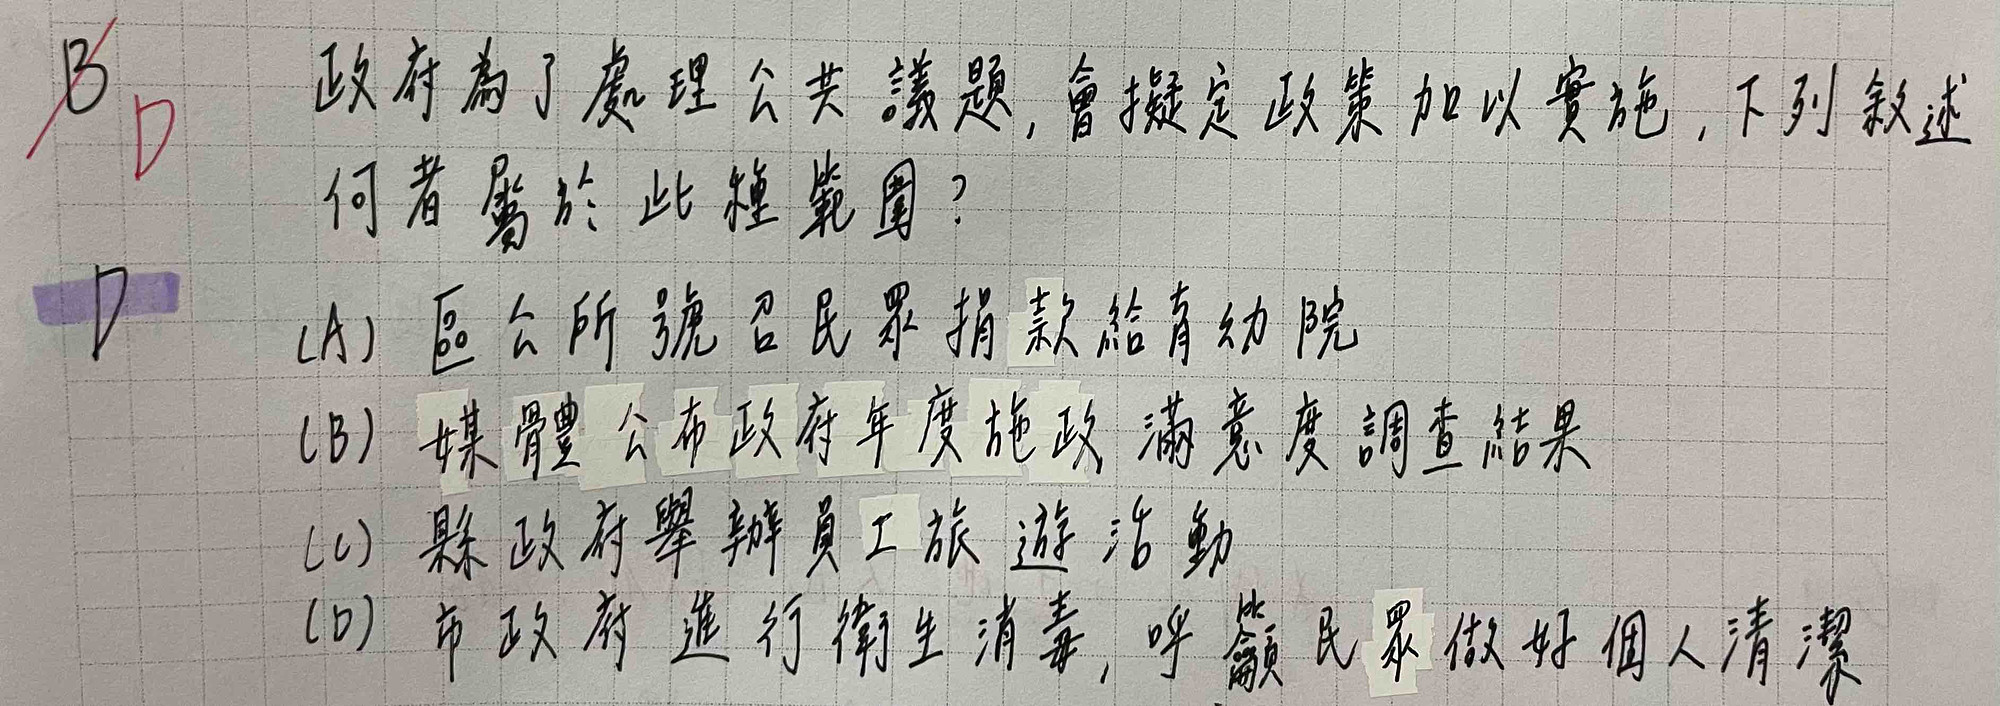 B
D
政府為了處理公共議題,會擬定政策加以實施,下列敘述
何者屬於此種範圍?
D
(A) 區公所號召民眾捐款給育幼院
(B) 媒體公布政府年度施政滿意度調查結果
(C) 縣政府舉辦員工旅遊活動
(D) 市政府進行衛生消毒,呼籲民眾做好個人清潔